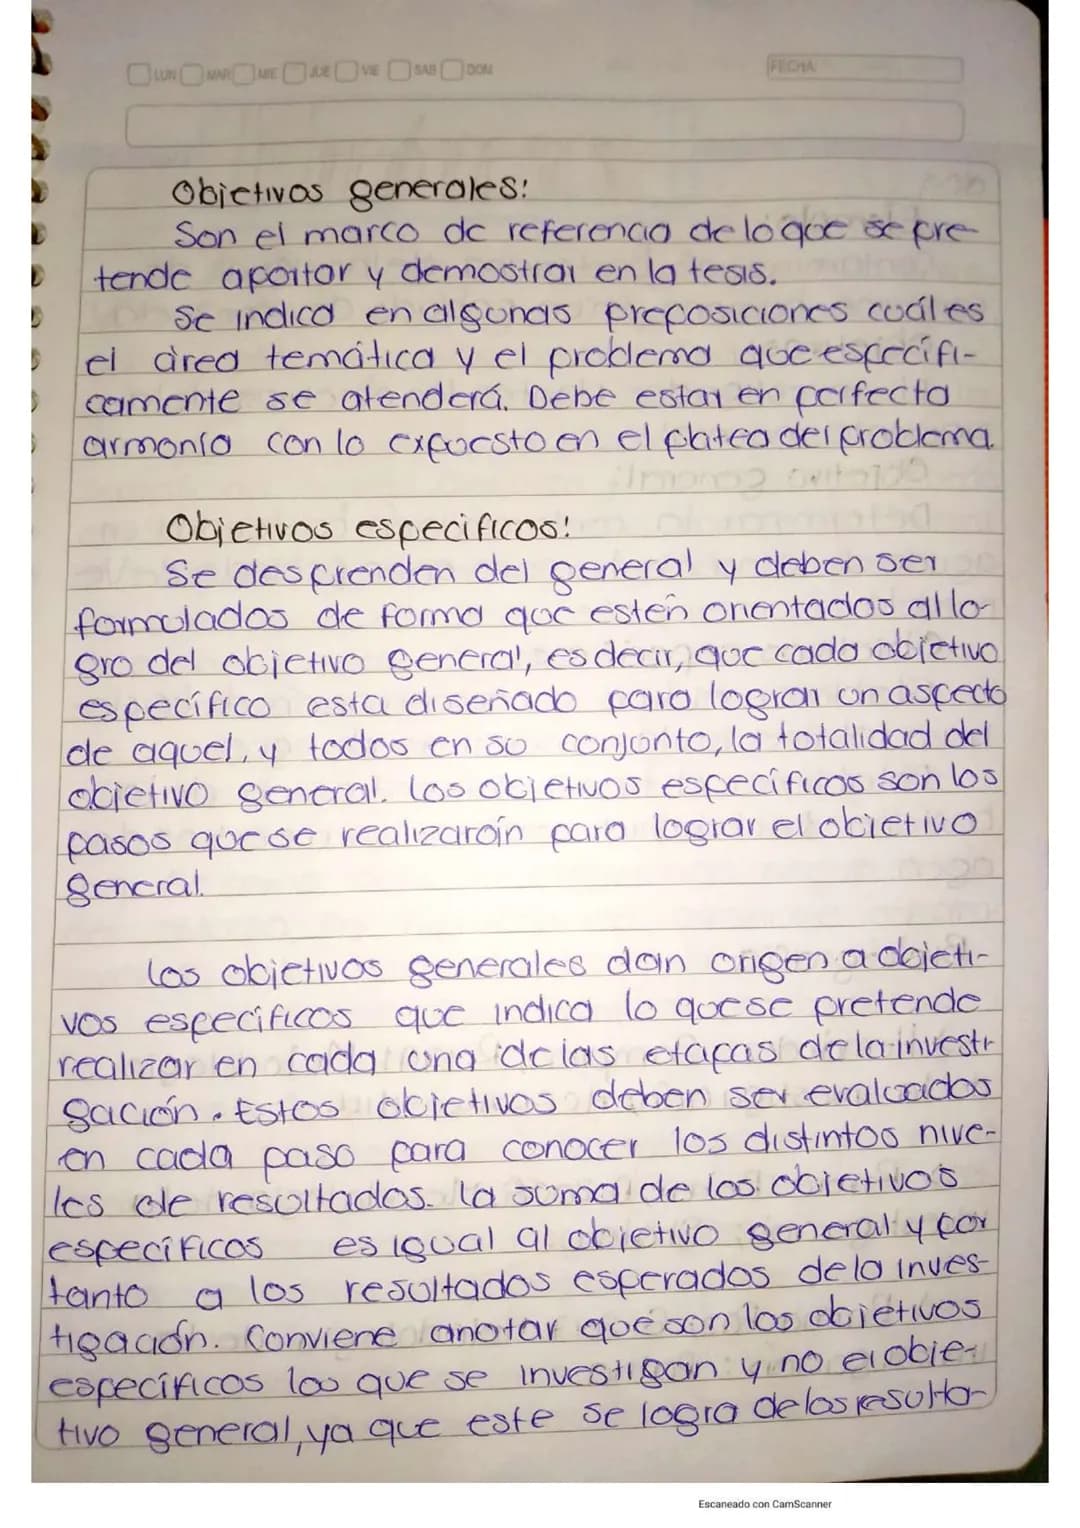 LUN MAR MIE JUE VIE SAB DOM FECHA
Objetivos generales:
Son el marco de referencia de lo que se pre-
tende aportar y demostrar en la tesis.
Se indica en algunas preposiciones cuál es
el área temática y el problema que especifi-
camente se atenderá. Debe estar en perfecta
armonía con lo expuesto en el platea del problema.
Objetivos especificos:
Se desprenden del general y deben ser
formulados de forma que esten orientados al lo-
gro del objetivo general, es decir, que cada objetivo
específico esta diseñado para lograr un aspecto
de aquel, y todos en su conjunto, la totalidad del
objetivo general. Los objetivos específicos son los
pasos que se realizarán para lograr el objetivo
general.
Los objetivos generales dan origen a objeti-
vos específicos que indica lo que se pretende
realizar en cada una de las etapas de la investi-
gación. Estos objetivos deben ser evaluados
en cada paso para conocer los distintos nive-
les de resultados. La suma de los objetivos
específicos es igual al objetivo general y por
tanto a los resultados esperados de la inves-
tigación. Conviene anotar que son los objetivos
específicos los que se investigan y no el obje-
tivo general, ya que este se logra de los resulta-
Escaneado con CamScanner